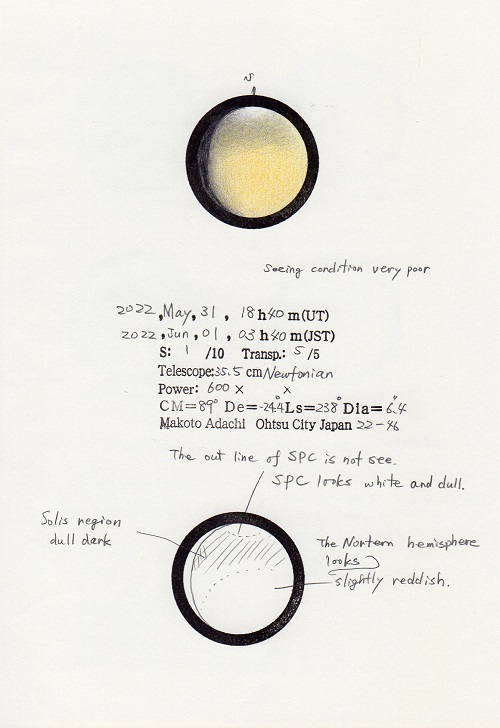 N
Seeing condition very poor
2022, May, 31, 18h40m(UT)
2022, Jun, 01, 03h40m(JST)
S: 1 /10 Transp.: 5 /5
Telescope: 35.5 cm Newtonian
Power: 600 × ×
CM=89° De=-24.4° Ls=238° Dia=6.4"
Makoto Adachi Ohtsu City Japan 22-46
The out line of SPC is not see.
SPC looks white and dull.
Solis region
dull dark
The Nortern hemisphere
looks
slightly reddish.